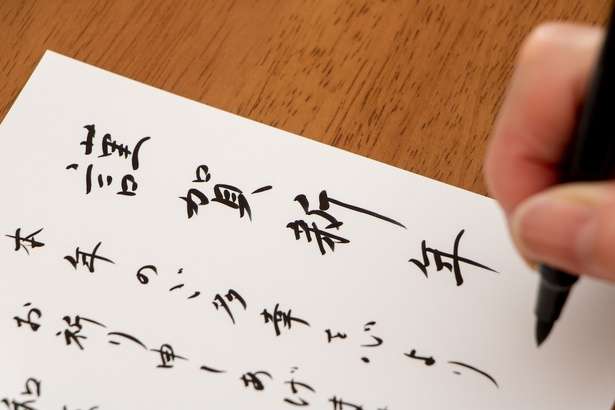 謹賀新年
本年のご多幸を心より
お祈り申しあげま